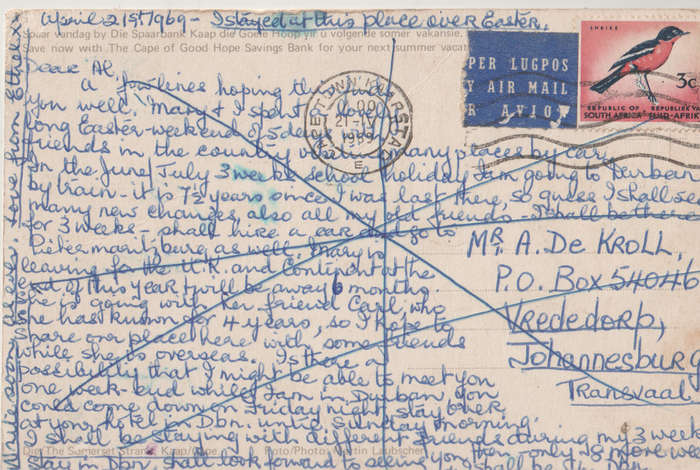 April 21st 1969 - I stayed at this place over Easter.
Spaar vandag by Die Spaarbank Kaap die Goeie Hoop vir u volgende somer vakansie.
Save now with The Cape of Good Hope Savings Bank for your next summer
Dear Al,
A few lines hoping this finds
you well. Mary & I spent
long Easter-weekend of 5 days with
friends in the country visiting many places by car.
In the June/July 3 weeks school holiday I am going to Durban
by train - it is 7½ years since I was last there, so guess I shall see
many new changes, also all my old friends - I shall be there
for 3 weeks - shall hire a car and go to
Pietermaritzburg as well. Mary is
leaving for the U.K. and Continent at the
end of this year & will be away 6 months.
She is going with her friend Carl, who
she has known for 4 years, so I hope to
share our place here with some friends
while she is overseas. Is there a
possibility that I might be able to meet you
one week-end while I am in Durban. You
could come down on Friday night, stay over
at your hotel in Dbn. until Sunday morning.
I shall be staying with different friends during my 3 weeks
stay in Dbn. Shall look forward to seeing you then - only 8 more
Die/The Somerset Strand, Kaap/Cape
Foto/Photo: Martin Laubscher
Write soon, Al
love from Ethel
PER LUGPOS
BY AIR MAIL
PAR AVION
SHRIKE
3c
REPUBLIC OF SOUTH AFRICA
REPUBLIEK VAN SUID-AFRIKA
21 IV
1969
E
MR. A. DE KROLL,
P.O. BOX 54046
VREDEDORP,
JOHANNESBURG
TRANSVAAL